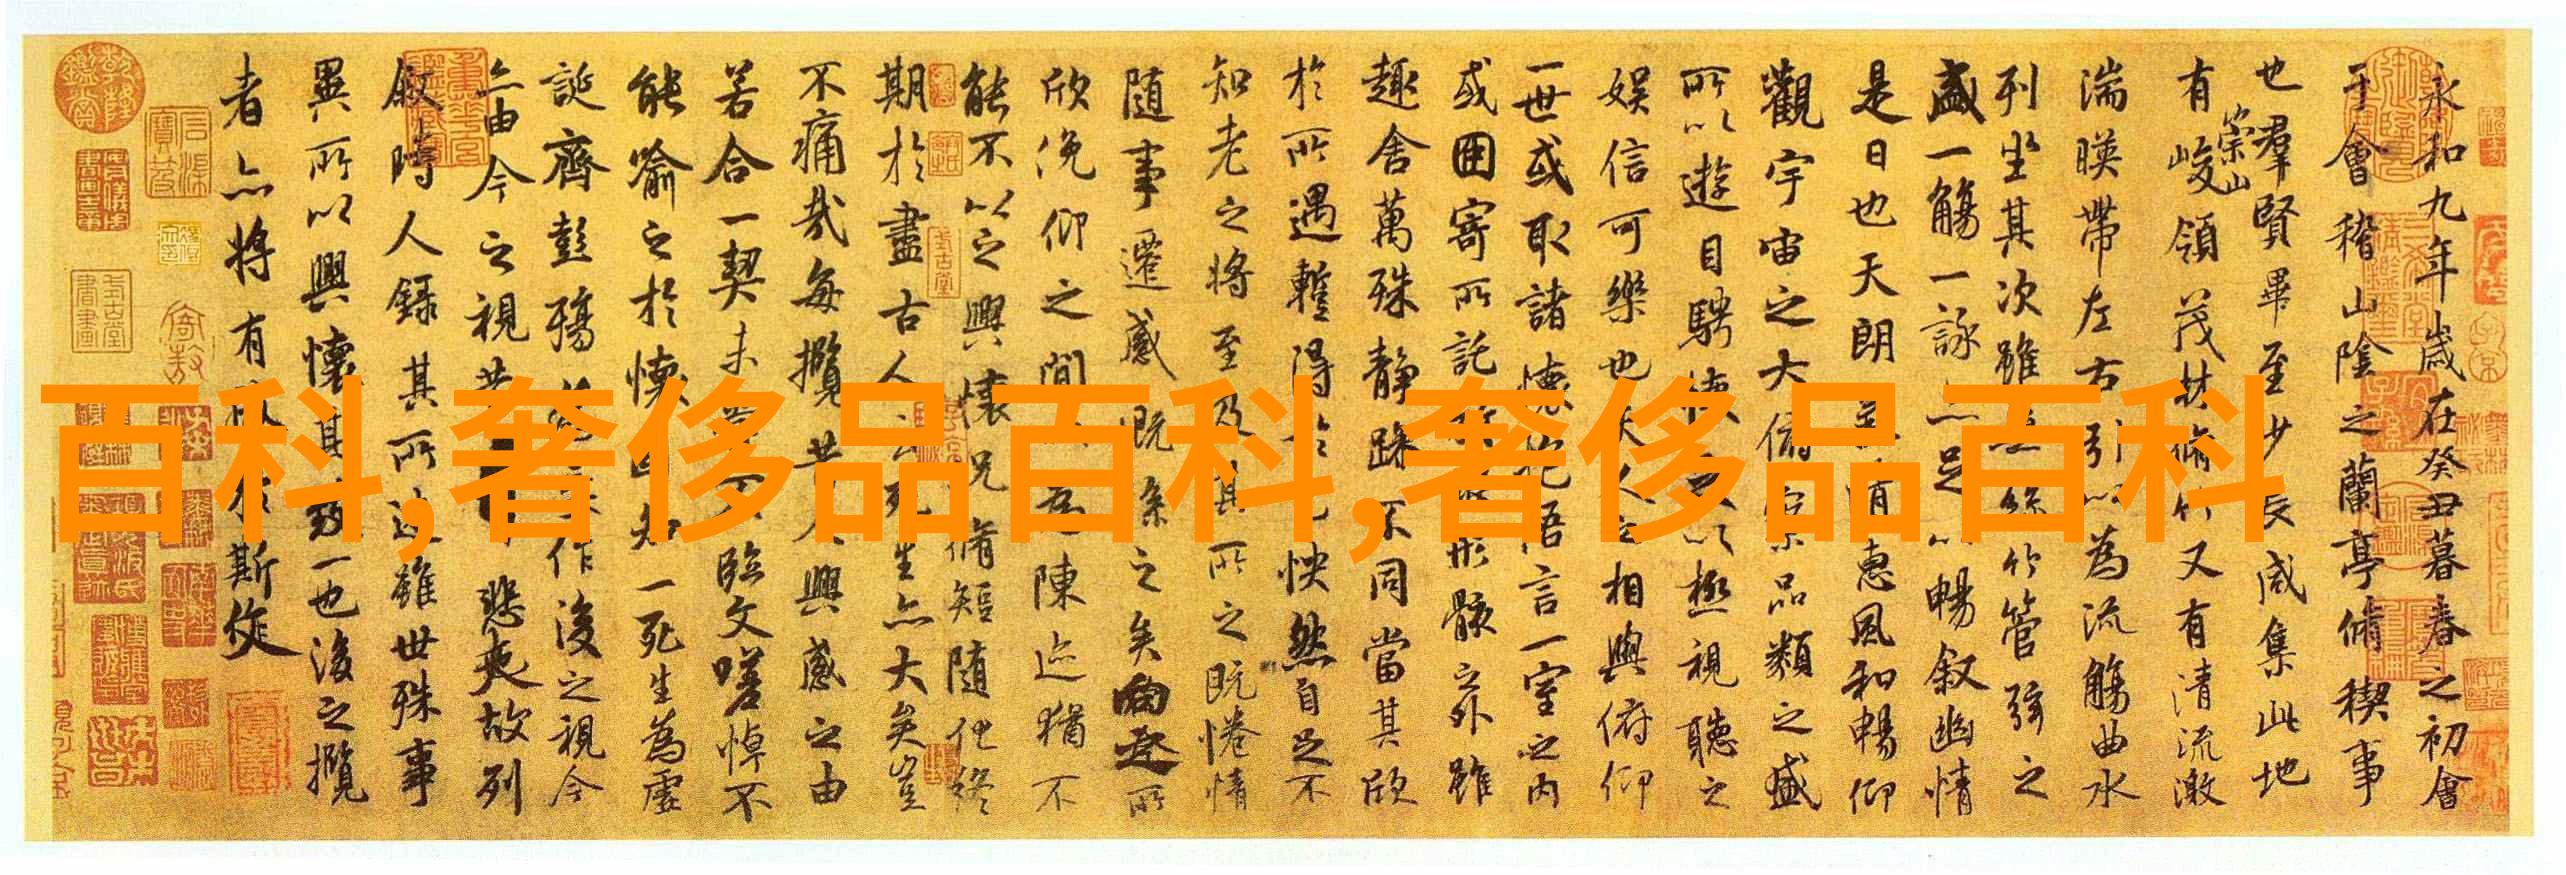 永和九年歲在癸丑暮春之初會
于會稽山陰之蘭亭脩稧事
也羣賢畢至少長咸集此地
有崇山峻領茂林脩竹又有清流激
湍暎帶左右引以為流觴曲水
列坐其次雖無絲竹管弦之
盛一觴一詠亦足以暢叙幽情
是日也天朗清惠風和暢仰
觀宇宙之大俯察品類之盛
所以遊目騁懷足以極視聽之
娛信可樂也夫人之相與俯仰
一世或取諸懷抱悟言一室之內
或因寄所託形骸之外雖
趣舍萬殊静躁不同當其欣
於所遇蹔得於己怏然自足不
知老之將至及其所之既惓情
随事遷感慨係之矣向之所
欣俛仰之間以為陳迹猶不
能不以之興懷況脩短随化終
期於盡古人云死生亦大矣豈
不痛哉每攬昔人興感之由
若合一契未嘗不臨文嗟悼不
能喻之於懷固知一死生為虛
誕齊彭殤作後之視今
亦由今之視昔悲夫故列
叙時人錄其所述雖世殊事
異所以興懷其致一也後之攬
者亦將有感於斯文
百科,奢侈品百科,奢侈品百科